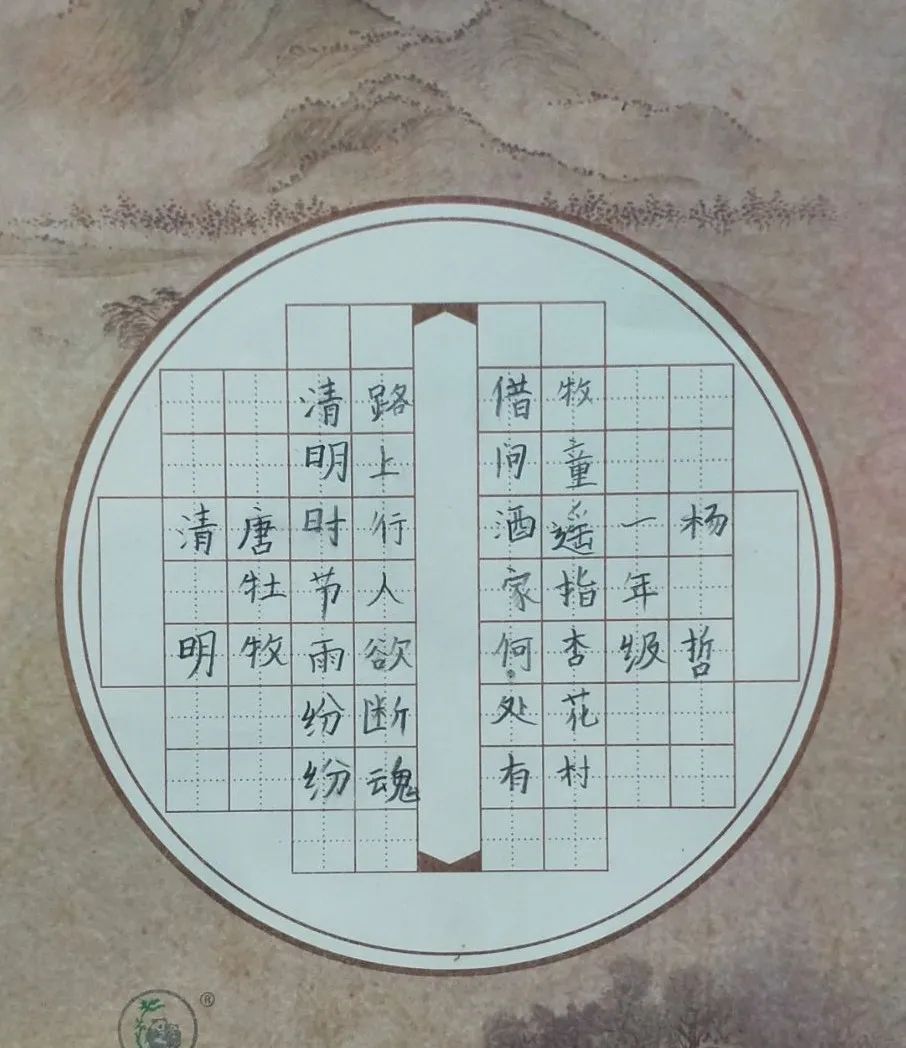 清明
唐牡牧
清明时节雨纷纷
路上行人欲断魂
借问酒家何处有
牧童遥指杏花村
一年级
杨哲
®